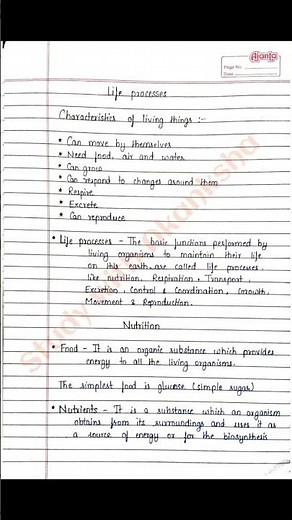 Ajanta
Page No.
Date
Life processes
Characteristics of living things :-
• Can move by themselves
• Need food, air and water
• Can grow
• Can respond to changes around them
• Respire
• Excrete
• Can reproduce
• Life processes - The basic functions performed by
living organisms to maintain their life
on this earth are called life processes.
like nutrition, Respiration, Transport,
Excretion, Control & Coordination, Growth,
Movement & Reproduction.
Nutrition
• Food - It is an organic substance which provides
energy to all the living organisms.
The simplest food is glucose (simple sugar)
• Nutrients - It is a substance which an organism
obtains from its surroundings and uses it as
a source of energy or for the biosynthesis
Study with Akanksha